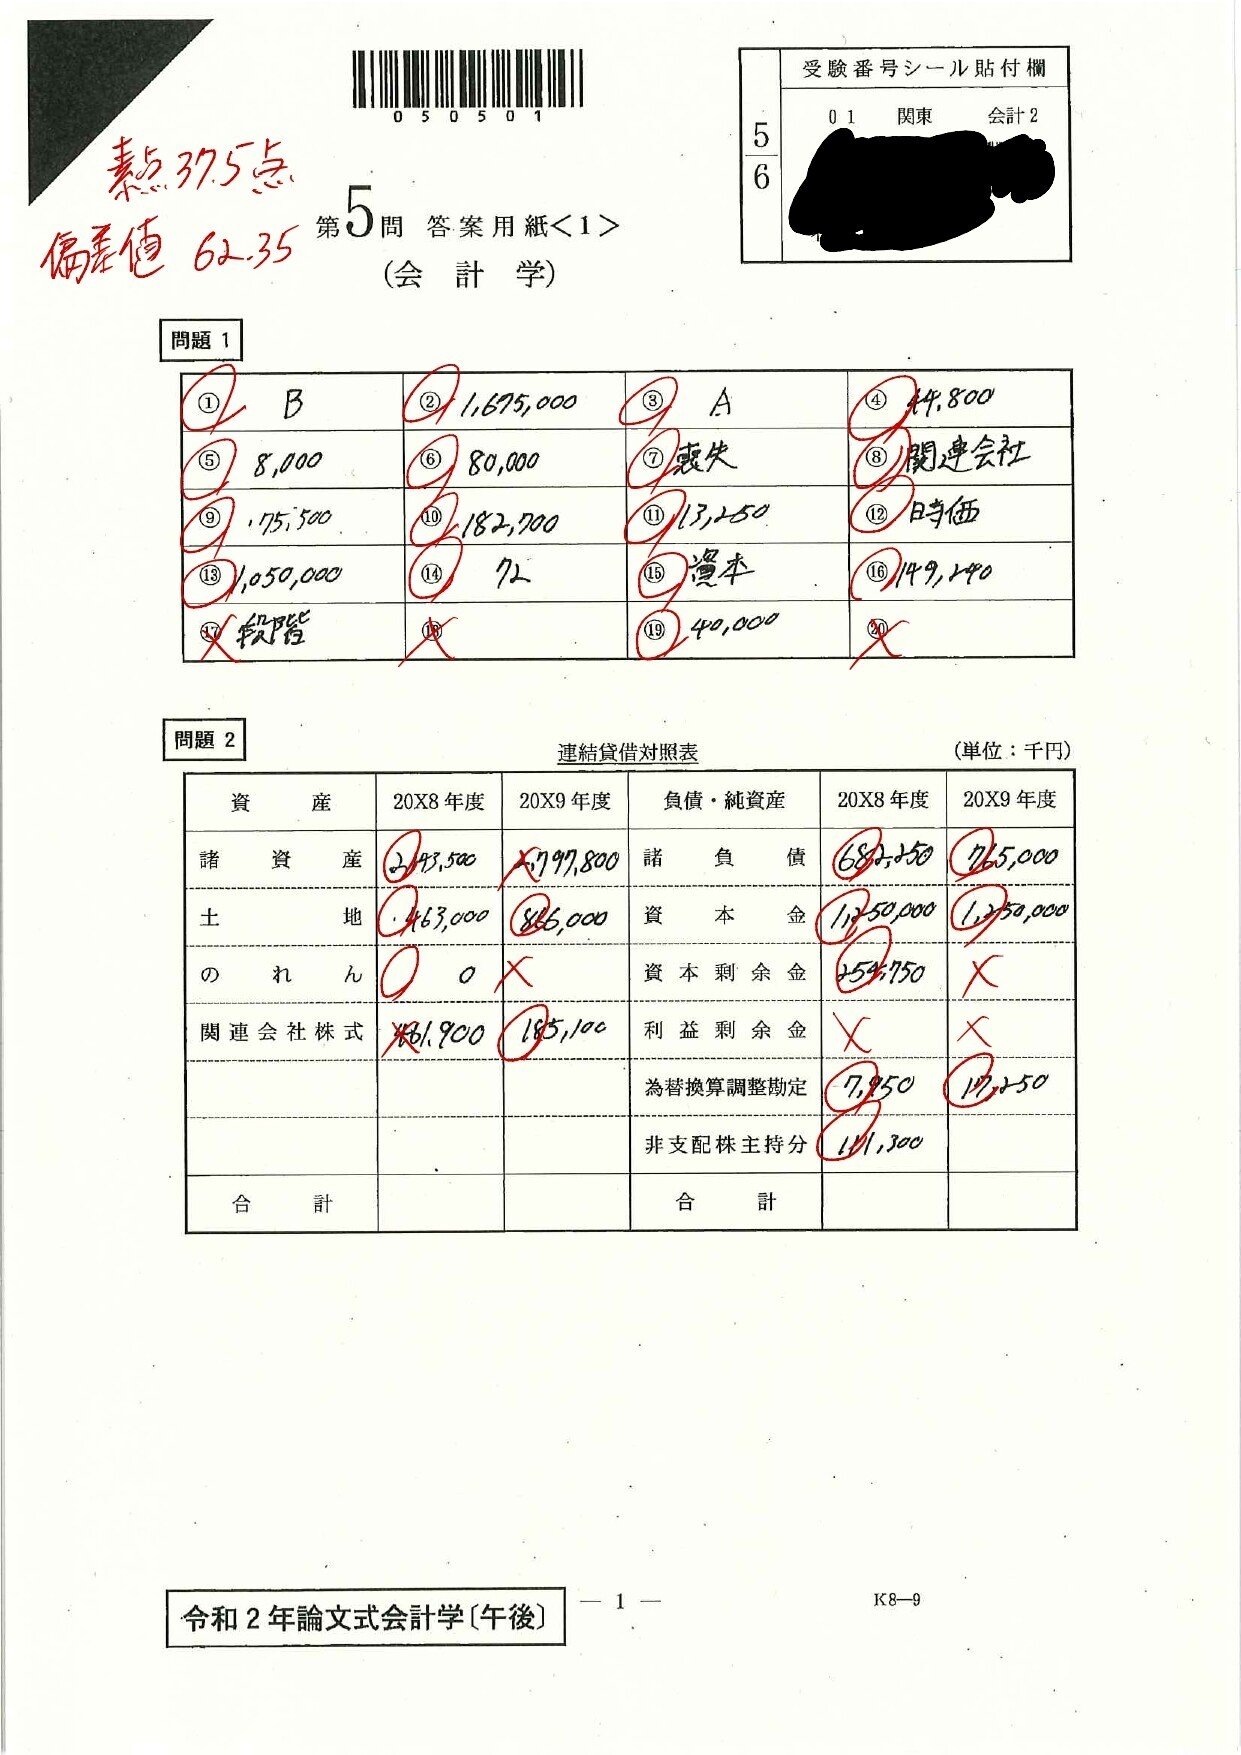 受験番号シール貼付欄
5
6
01 関東 会計2
050501
素点 37.5点
偏差値 62.35
第5問 答案用紙<1>
(会計学)
問題 1
① B ② 1,675,000 ③ A ④ 44,800
⑤ 8,000 ⑥ 80,000 ⑦ 喪失 ⑧ 関連会社
⑨ 75,500 ⑩ 182,700 ⑪ 13,250 ⑫ 時価
⑬ 1,050,000 ⑭ 72 ⑮ 資本 ⑯ 149,240
⑰ 段階 ⑱ ⑲ 40,000 ⑳
問題 2
連結貸借対照表 (単位:千円)
資産 20X8年度 20X9年度 負債・純資産 20X8年度 20X9年度
諸資産 2,797,800 諸負債 682,250 765,000
土地 463,000 866,000 資本金 1,250,000 1,250,000
のれん 0 資本剰余金 254,750
関連会社株式 461,900 185,100 利益剰余金
為替換算調整勘定 7,950 17,250
非支配株主持分 111,300
合計 合計
令和2年論文式会計学〔午後〕
― 1 ―
K8―9